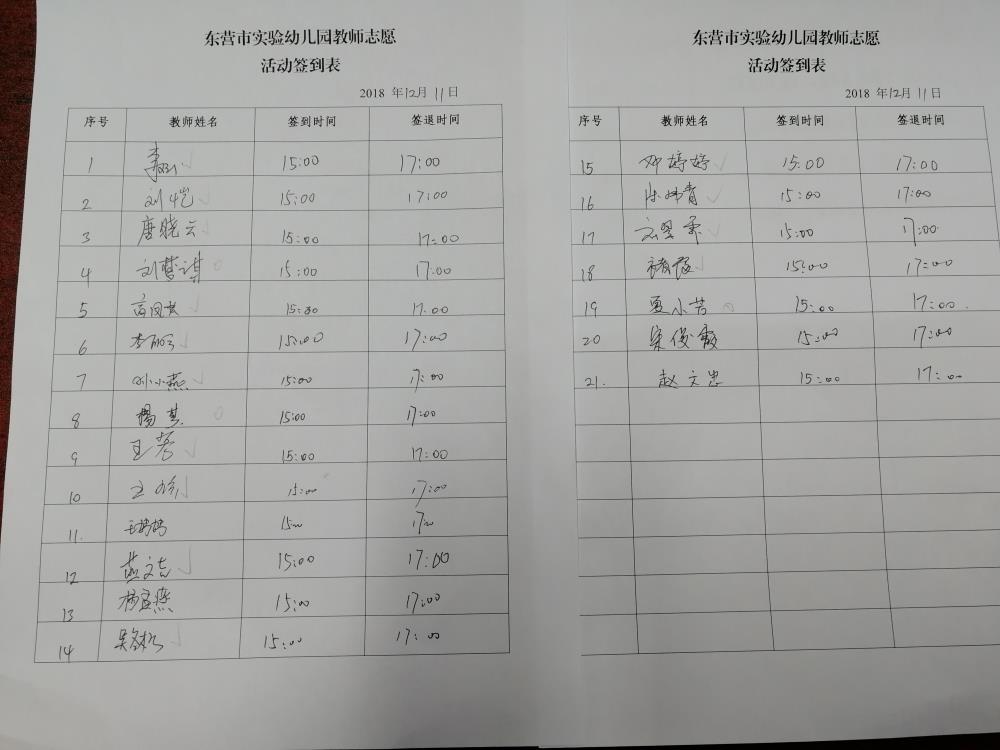 东营市实验幼儿园教师志愿
活动签到表
2018 年12月11日
序号 教师姓名 签到时间 签退时间
1 15:00 17:00
2 刘恺 15:00 17:00
3 唐晓云 15:00 17:00
4 刘梦琪 15:00 17:00
5 高凤 15:00 17:00
6 李 15:00 17:00
7 孙小燕 15:00 17:00
8 杨其 15:00 17:00
9 王芳 15:00 17:00
10 王 15:00 17:00
11. 15 17
12 燕文志 15:00 17:00
13 杨 燕 15:00 17:00
14 15:00 17:00
东营市实验幼儿园教师志愿
活动签到表
2018 年12月11日
序号 教师姓名 签到时间 签退时间
15 邓婷婷 15:00 17:00
16 青 15:00 17:00
17 15:00 17:00
18 15:00 17:00
19 夏小芳 15:00 17:00.
20 宋俊霞 15:00 17:00
21. 赵文忠 15:00 17:00